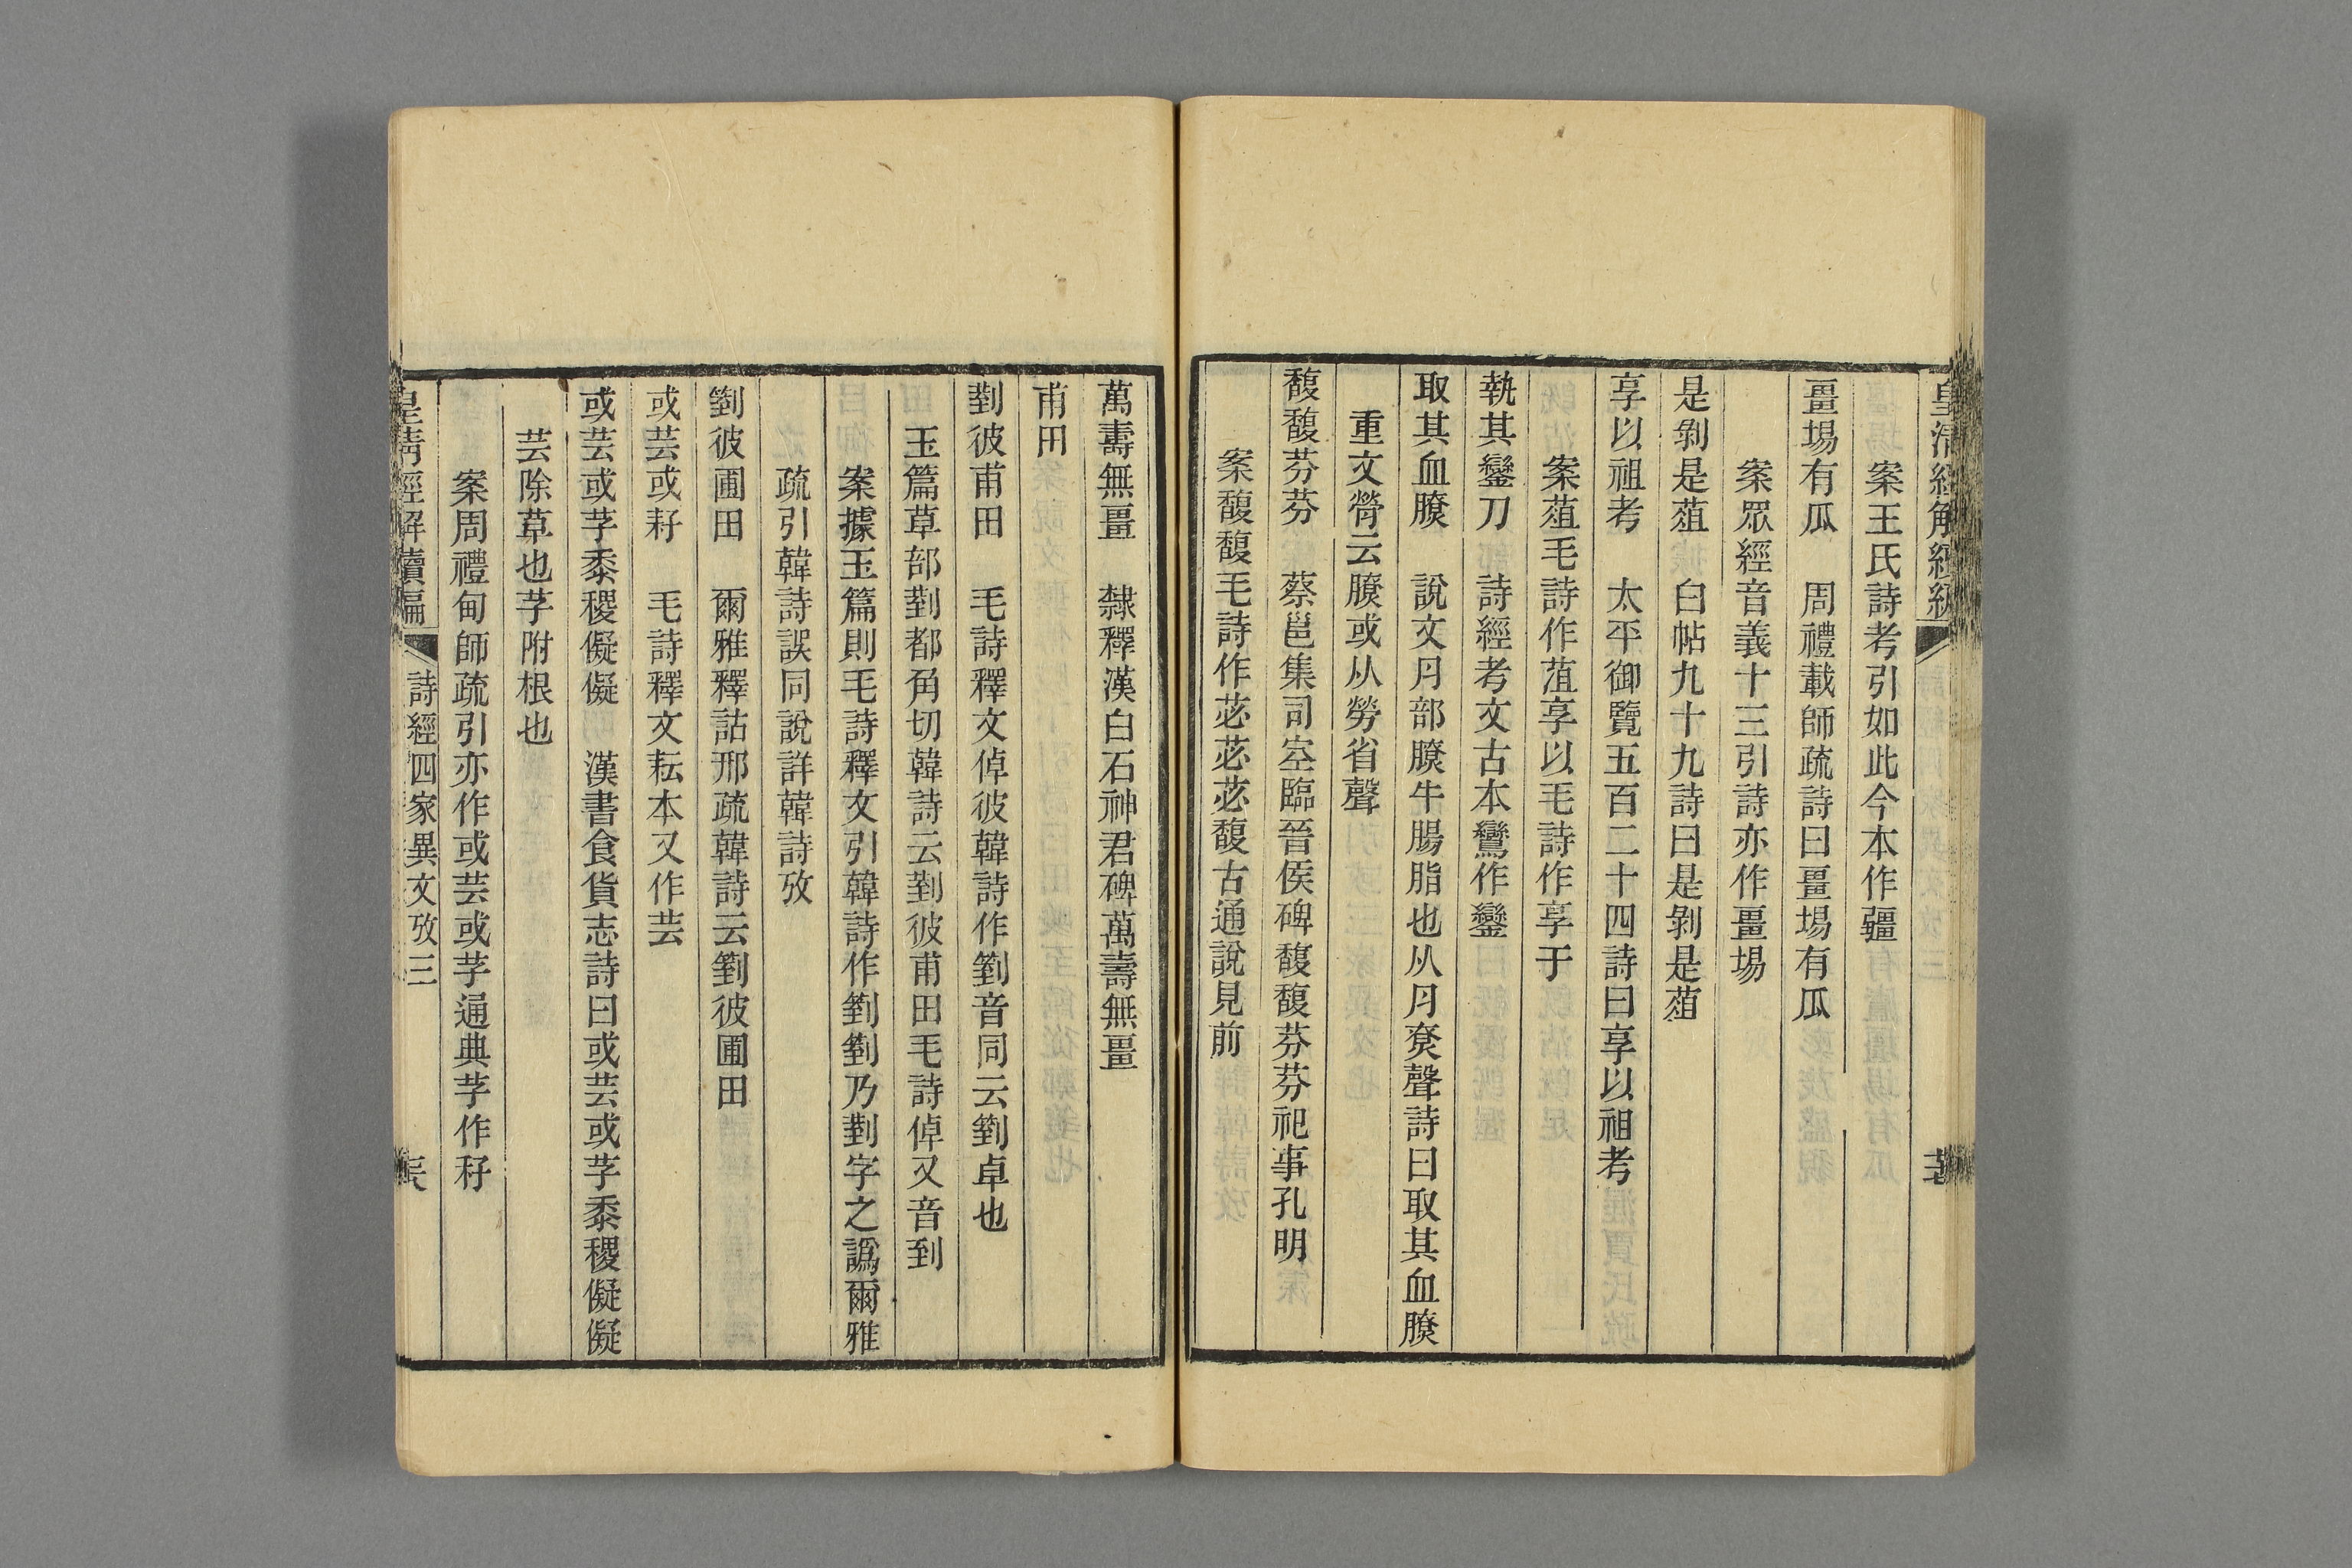 案王氏詩考引如此今本作疆
畺埸有瓜　周禮載師疏詩曰畺埸有瓜
案眾經音義十三引詩亦作畺埸
是剝是蒩　白帖九十九詩曰是剝是蒩
享以祖考　太平御覽五百二十四詩曰享以祖考
案蒩毛詩作菹享以毛詩作享于
執其鑾刀　詩經考文古本鸞作鑾
取其血膫　說文肉部膫牛腸脂也从肉尞聲詩曰取其血膫
重文膋云膫或从勞省聲
馥馥芬芬　蔡邕集司空臨晉侯碑馥馥芬芬祀事孔明
案馥馥毛詩作苾苾苾馥古通說見前
萬壽無畺　隸釋漢白石神君碑萬壽無畺
甫田
菿彼甫田　毛詩釋文倬彼韓詩作箌音同云箌卓也
玉篇草部菿都角切韓詩云菿彼甫田毛詩倬又音到
案據玉篇則毛詩釋文引韓詩作箌箌乃菿字之譌爾雅
疏引韓詩誤同說詳韓詩攷
箌彼圃田　爾雅釋詁邢疏韓詩云箌彼圃田
或芸或耔　毛詩釋文耘本又作芸
或芸或芓黍稷儗儗　漢書食貨志詩曰或芸或芓黍稷儗儗
芸除草也芓附根也
案周禮甸師疏引亦作或芸或芓通典芓作秄
皇清經解續編　詩經四家異文攷三